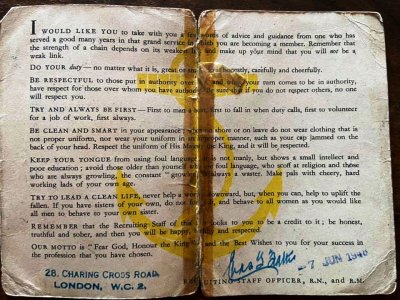 I WOULD LIKE YOU to take with you a few words of advice and guidance from one who has
served a good many years in that grand service of which you are becoming a member. Remember that
the strength of a chain depends on its weakest link and make up your mind that you will not be a
weak link.
DO YOUR duty — no matter what it is, great or small, cheerfully and cheerfully.
BE RESPECTFUL to those put in authority over you and, when your turn comes to be in authority,
have respect for those over whom you have authority. Be sure that if you do not respect others, no one
will respect you.
TRY AND ALWAYS BE FIRST — First to man a boat, first to fall in when duty calls, first to volunteer
for a job of work, first always.
BE CLEAN AND SMART in your appearance; when on shore or on leave do not wear clothing that is
not proper uniform, nor wear your uniform in an improper manner, such as your cap jammed on the
back of your head. Respect the uniform of His Majesty the King, and it will be respected.
KEEP YOUR TONGUE from using foul language. It is not manly, but shows a small intellect and
poor education; avoid those older than yourself who use foul language, who scoff at religion and those
who are always growling; the constant " growler " is always a waster. Make pals with cheery, hard
working lads of your own age.
TRY TO LEAD A CLEAN LIFE, never help a woman downward, but, when you can, help to uplift the
fallen. If you have sisters of your own, do not forget them, and behave to all women as you would like
all men to behave to your own sister.
REMEMBER that the Recruiting Staff of this looks to you to be a credit to it; be honest,
truthful and sober, and then you will be happy, healthy and respected.
OUR MOTTO is " Fear God, Honour the King " and the Best Wishes to you for your success in
the profession that you have chosen.
28. CHARING CROSS ROAD,
LONDON, W.C. 2.
-7 JUN 1946
RECRUITING STAFF OFFICER, R.N., and R.M.